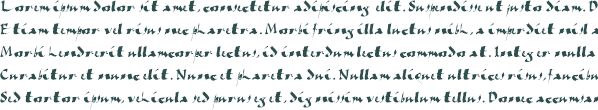 Lorem ipsum dolor sit amet, consectetur adipiscing elit. Suspendisse justo diam. D
Etiam tempor vel risus nec pharetra. Morbi fringilla luctus nibh, a imperdiet nisl a
Morbi hendrerit ullamcorper lectus, id interdum lectus commodo at. Integer nulla
Curabitur et nunc elit. Nunc et pharetra dui. Nullam aliquet ultrices risus, faucibu
Sed tortor ipsum, vehicula sed purus eget, dignissim vestibulum tellus. Donec accumsan